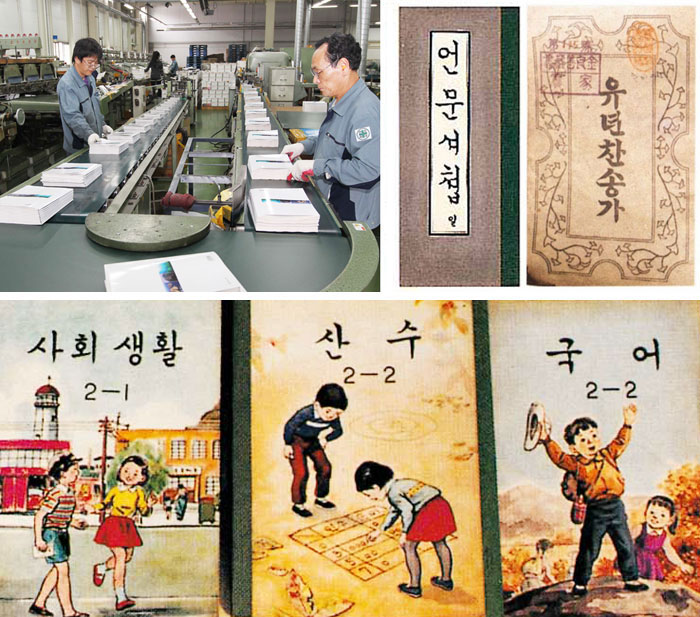 언문셔첩 일
유년찬송가
사회 생활
2-1
산 수
2-2
국 어
2-2